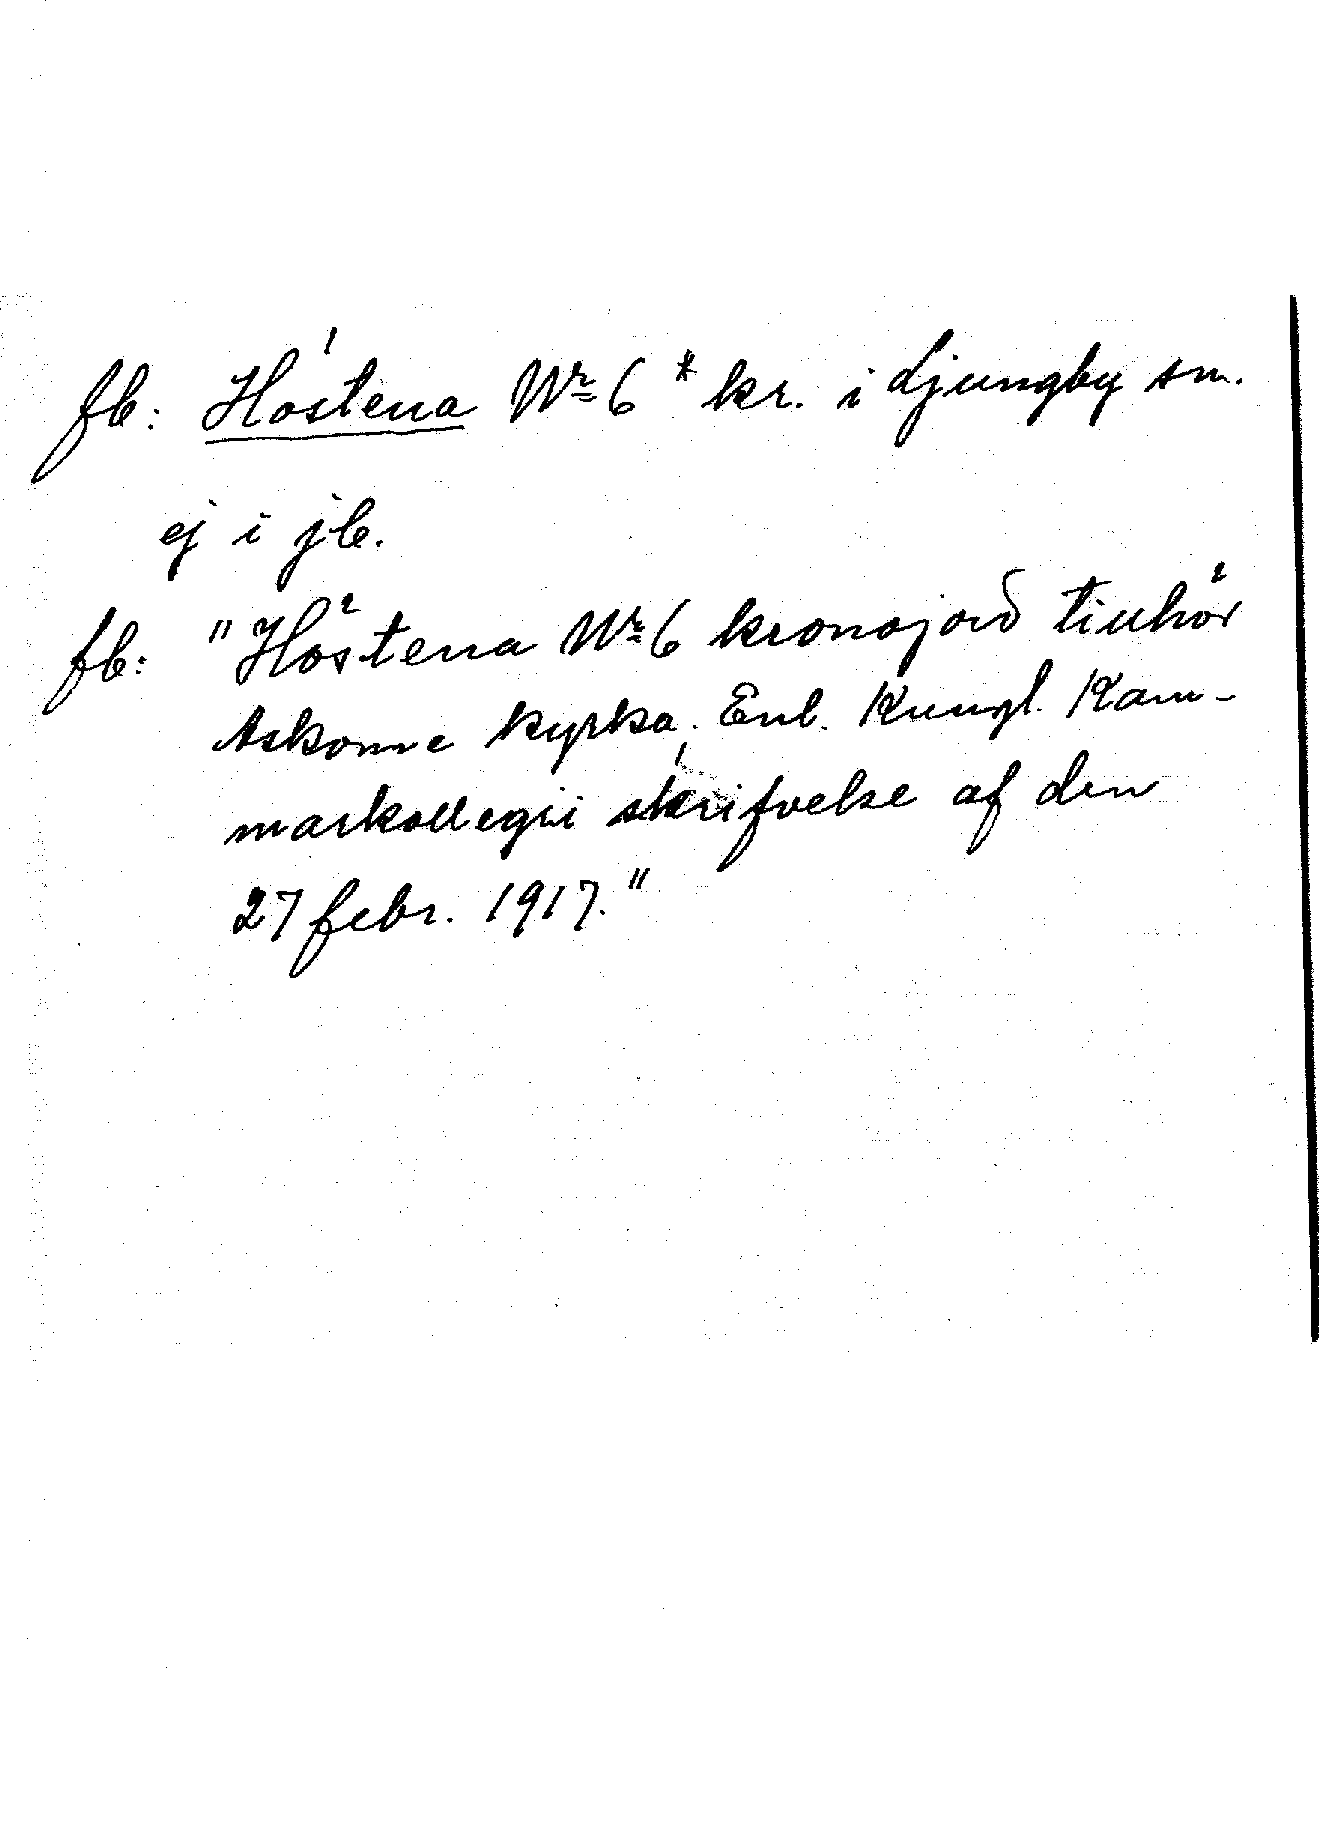 fb: Höstena Nr 6 * kr. i Ljungby sn.
ej i jb.
fb: "Höstena Nr 6 kronojord tillhör
Askome kyrka. Enl. Kungl. Kam-
markollegii skrifvelse af den
27 febr. 1917."